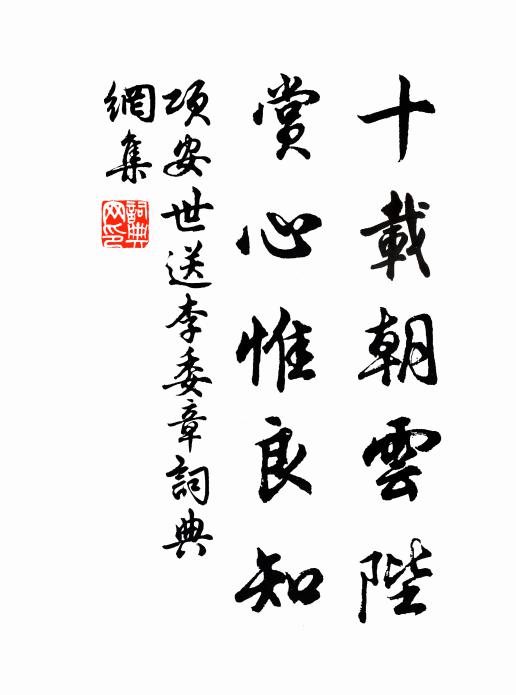 十載朝雲陛
賞心惟良知
項安世送李委章詞典
網集
詞典網印